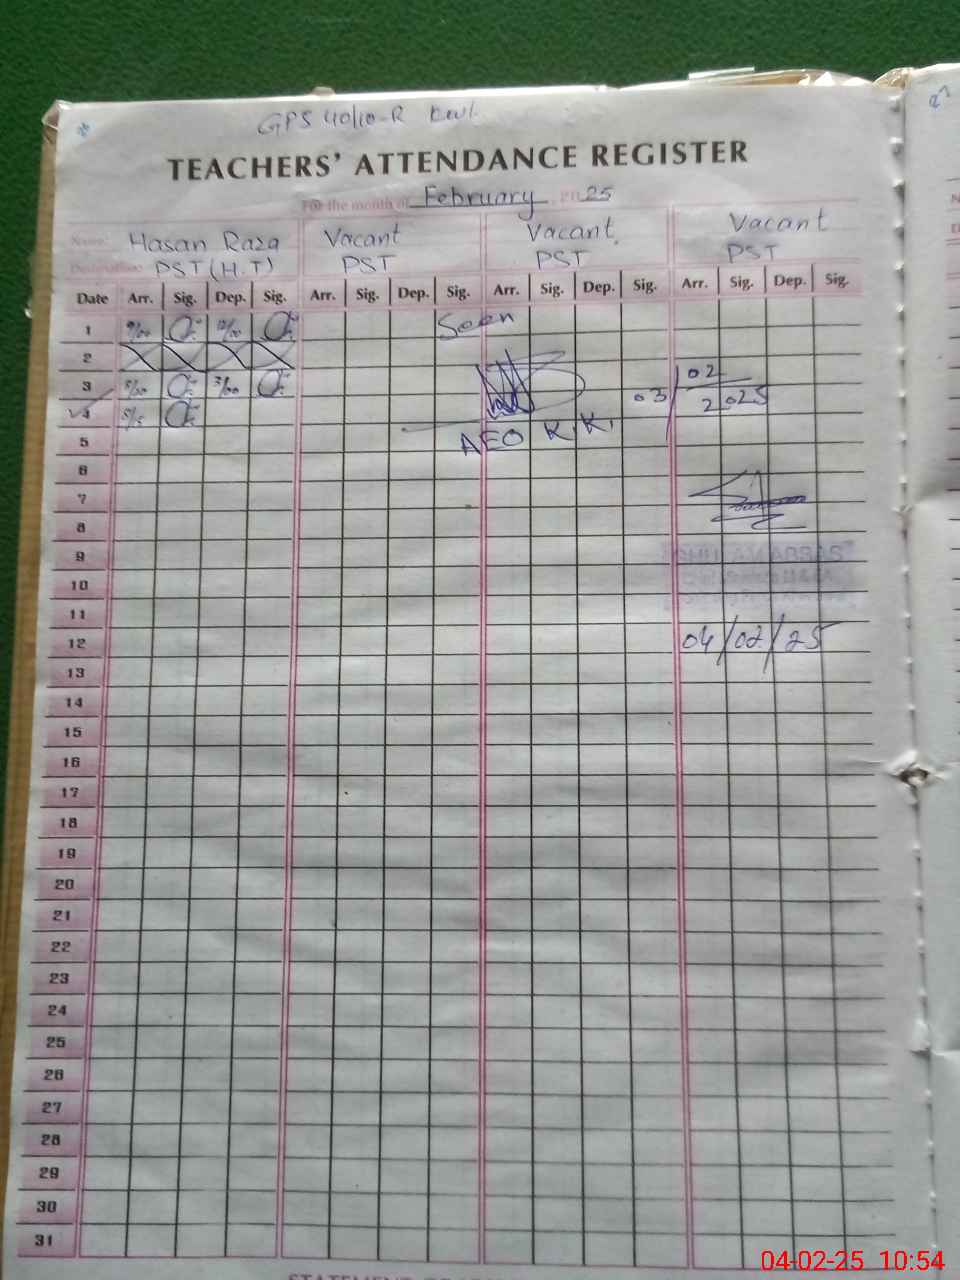 GPS 40/10-R
TEACHERS' ATTENDANCE REGISTER
For the month of February 2025
Name: Hasan Raza Vacant Vacant Vacant
Designation: PST (H.T) PST PST PST
Date Arr. Sig. Dep. Sig. Arr. Sig. Dep. Sig. Arr. Sig. Dep. Sig. Arr. Sig. Dep. Sig.
1 Seen
2
3 03/02
2025
4
5 AEO K.K.
6
7
8
9
10
11
12 04/02/25
13
14
15
16
17
18
19
20
21
22
23
24
25
26
27
28
29
30
31
04-02-25 10:54